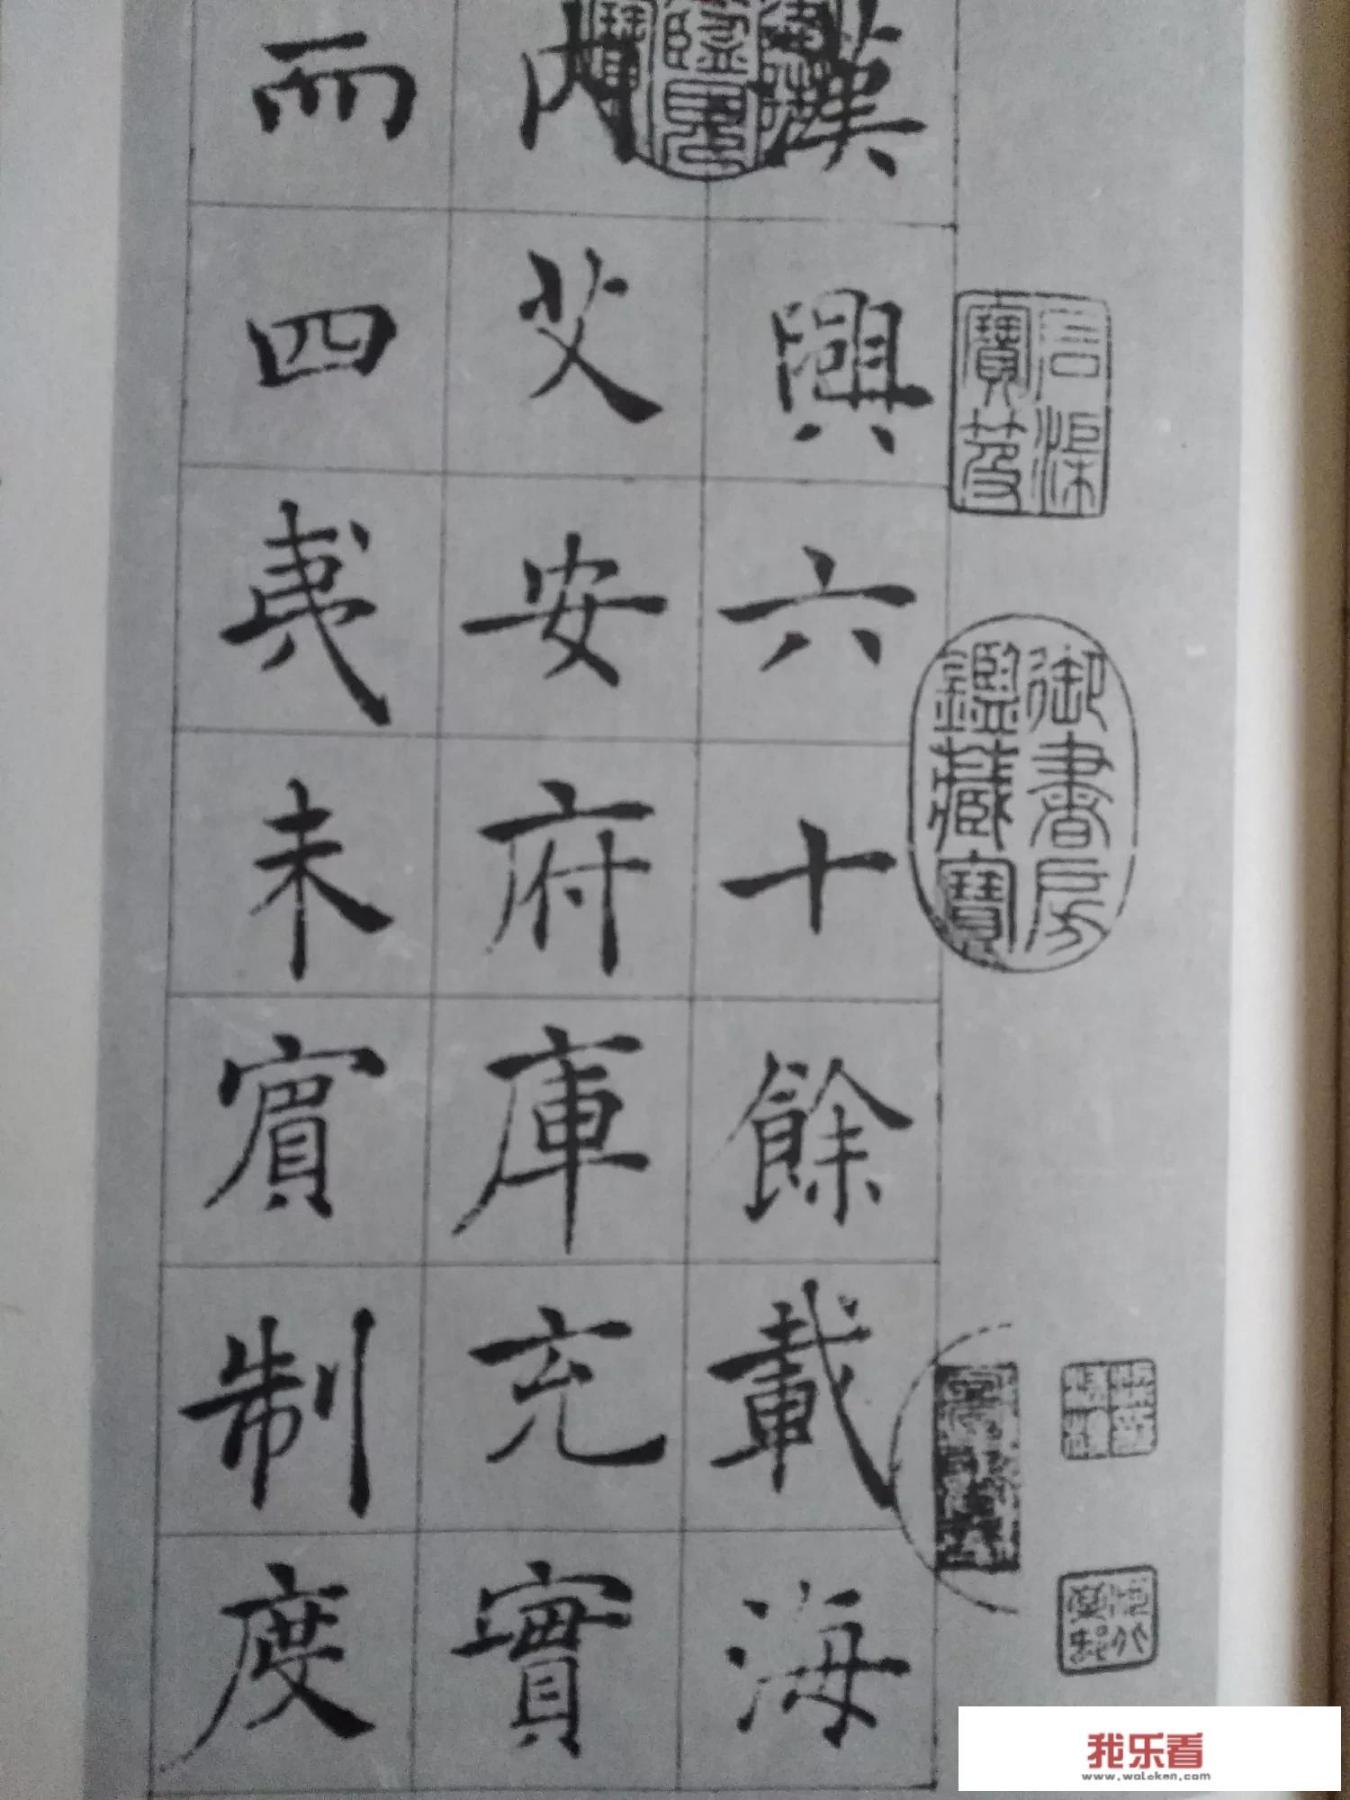 漢興六十餘載海
内艾安府庫充實
而四夷未賓制度
石渠寶笈
御書房鑑藏寶
我乐看
www.woleken.com